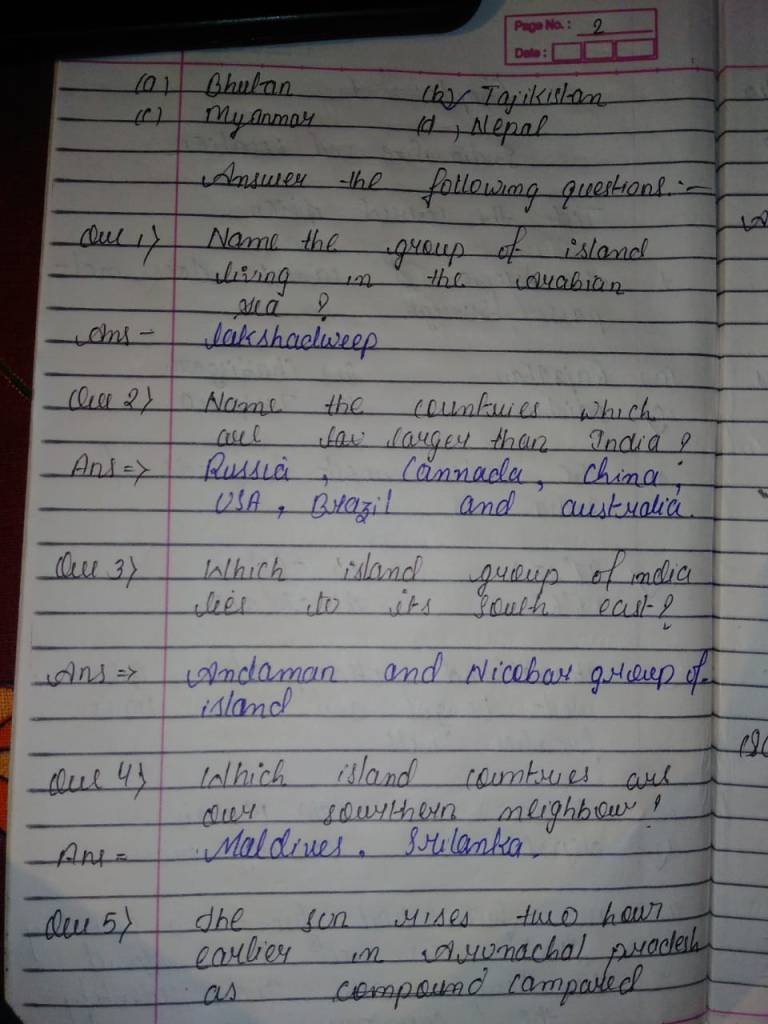 Page No.: 2
Date:
(a) Bhutan (b) Tajikistan
(c) Myanmar (d, Nepal
Answer the following questions :-
Que 1) Name the group of island
living in the Arabian
sea ?
Ans - lakshadweep
Que 2) Name the countries which
are far larger than India ?
Ans => Russia, Cannada, China,
USA, Brazil and australia.
Que 3) Which island group of india
lies to its south east ?
Ans => Andaman and Nicobar group of
island
Que 4) Which island countries are
our sourthern neighbour ?
Ans = Maldives. Srilanka.
Que 5) the sun rises two hour
earlier in Arunachal pradesh
as compound campared